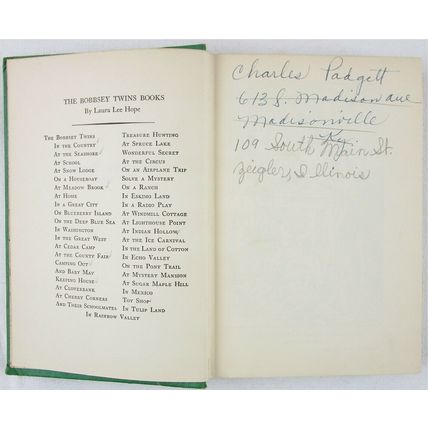 THE BOBBSEY TWINS BOOKS
By Laura Lee Hope
THE BOBBSEY TWINS
IN THE COUNTRY
AT THE SEASHORE
AT SCHOOL
AT SNOW LODGE
ON A HOUSEBOAT
AT MEADOW BROOK
AT HOME
IN A GREAT CITY
ON BLUEBERRY ISLAND
ON THE DEEP BLUE SEA
IN WASHINGTON
IN THE GREAT WEST
AT CEDAR CAMP
AT THE COUNTY FAIR
CAMPING OUT
AND BABY MAY
KEEPING HOUSE
AT CLOVERBANK
AT CHERRY CORNERS
AND THEIR SCHOOLMATES
TREASURE HUNTING
AT SPRUCE LAKE
WONDERFUL SECRET
AT THE CIRCUS
ON AN AIRPLANE TRIP
SOLVE A MYSTERY
ON A RANCH
IN ESKIMO LAND
IN A RADIO PLAY
AT WINDMILL COTTAGE
AT LIGHTHOUSE POINT
AT INDIAN HOLLOW
AT THE ICE CARNIVAL
IN THE LAND OF COTTON
IN ECHO VALLEY
ON THE PONY TRAIL
AT MYSTERY MANSION
AT SUGAR MAPLE HILL
IN MEXICO
TOY SHOP
IN TULIP LAND
IN RAINBOW VALLEY
Charles Padgett
613 S. Madison ave
Madisonville
Ky.
109 South Main St.
Zeigler, Illinois